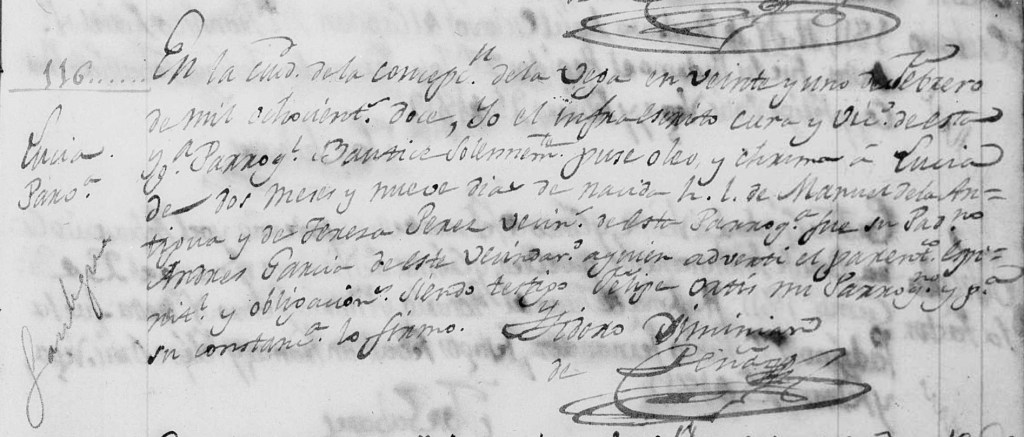 116
Lucia
Párv.ª
En la ciud. de la concepc.n de la Vega en veinte y uno de Febrero
de mil ochocient.s doce, Yo el infraescrito cura y Vic.º de esta
Y.ª Parroq.l Bautice Solemnem.te puse oleo, y chrisma â Lucia
de dos meses y nueve dias de nacida h. l. de Manuel de la An=
tigua y de Teresa Perez vecin.s de esta Parroq.ª fue su Pad.no
Andres Garcia de este Vecindar.º a quien adverti el parent.co Espi=
rit.l y obligacion.s siendo testigo Felipe Ortis mi Parroq.no y p.ª
su constan.ª lo firmo.
Ysidoro Ximinian
de Peña